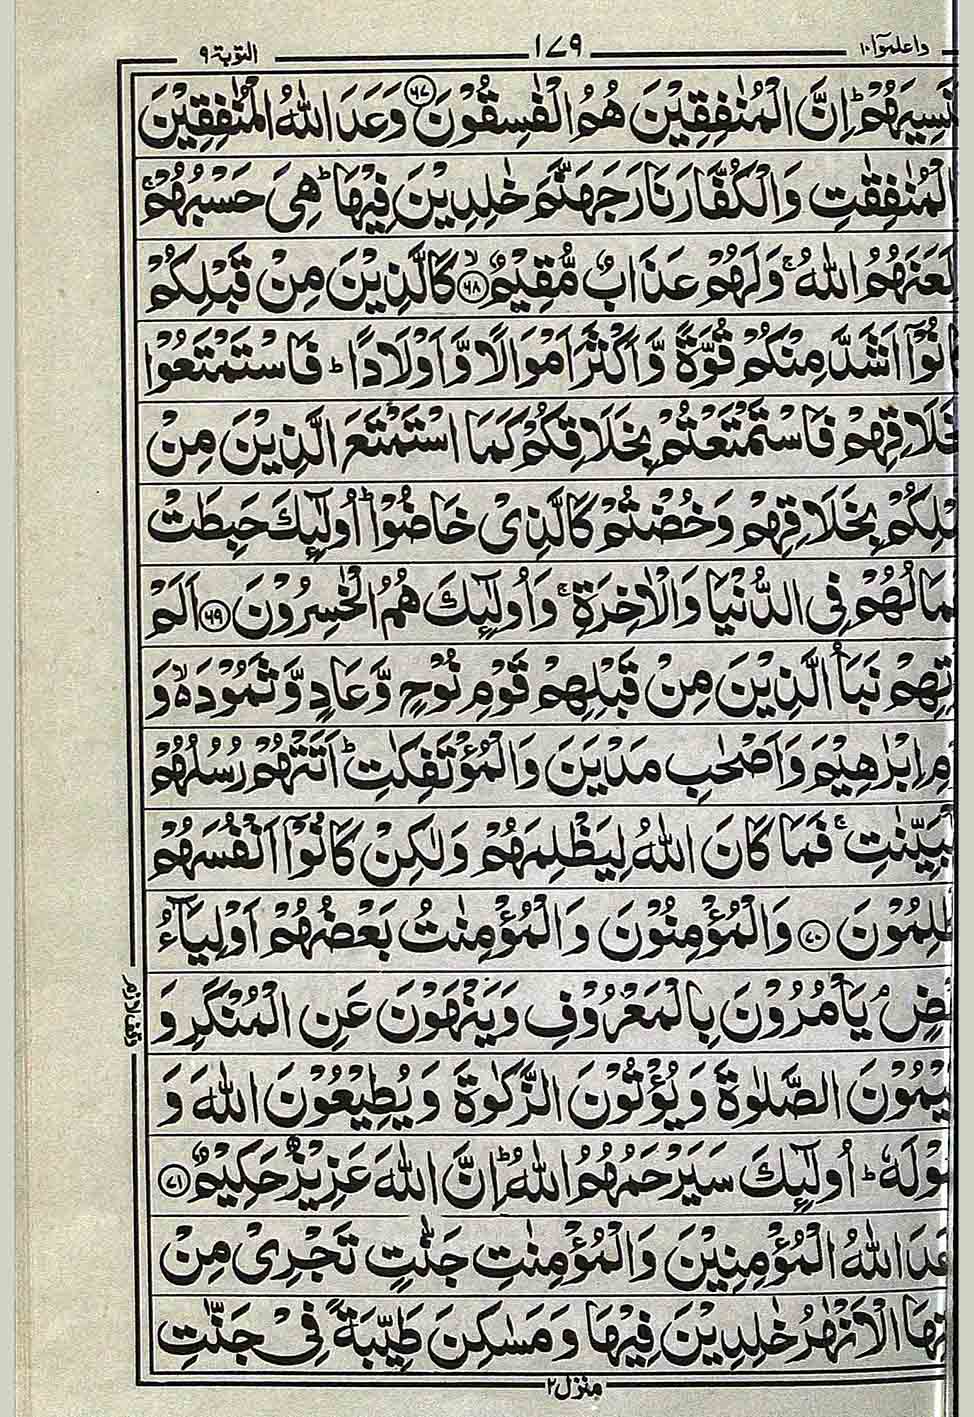 واعلموا١٠ ١٧٩ التوبة٩
نَسِيَهُمْ ؕ اِنَّ الْمُنٰفِقِيْنَ هُمُ الْفٰسِقُوْنَ ﴿۶۷﴾ وَعَدَ اللّٰهُ الْمُنٰفِقِيْنَ
الْمُنٰفِقٰتِ وَالْكُفَّارَ نَارَ جَهَنَّمَ خٰلِدِيْنَ فِيْهَا ؕ هِيَ حَسْبُهُمْ ۚ
لَعَنَهُمُ اللّٰهُ ۚ وَلَهُمْ عَذَابٌ مُّقِيْمٌ ۙ﴿۶۸﴾ كَالَّذِيْنَ مِنْ قَبْلِكُمْ
انُوْۤا اَشَدَّ مِنْكُمْ قُوَّةً وَّاَكْثَرَ اَمْوَالًا وَّاَوْلَادًا ؕ فَاسْتَمْتَعُوْا
خَلَاقِهِمْ فَاسْتَمْتَعْتُمْ بِخَلَاقِكُمْ كَمَا اسْتَمْتَعَ الَّذِيْنَ مِنْ
بْلِكُمْ بِخَلَاقِهِمْ وَخُضْتُمْ كَالَّذِيْ خَاضُوْا ؕ اُولٰٓئِكَ حَبِطَتْ
مَالُهُمْ فِي الدُّنْيَا وَالْاٰخِرَةِ ۚ وَاُولٰٓئِكَ هُمُ الْخٰسِرُوْنَ ﴿۶۹﴾ اَلَمْ
تِهِمْ نَبَاُ الَّذِيْنَ مِنْ قَبْلِهِمْ قَوْمِ نُوْحٍ وَّعَادٍ وَّثَمُوْدَ ۙ۬ وَ
مِ اِبْرٰهِيْمَ وَاَصْحٰبِ مَدْيَنَ وَالْمُؤْتَفِكٰتِ ؕ اَتَتْهُمْ رُسُلُهُمْ
لْبَيِّنٰتِ ۚ فَمَا كَانَ اللّٰهُ لِيَظْلِمَهُمْ وَلٰكِنْ كَانُوْۤا اَنْفُسَهُمْ
ظْلِمُوْنَ ﴿۷۰﴾ وَالْمُؤْمِنُوْنَ وَالْمُؤْمِنٰتُ بَعْضُهُمْ اَوْلِيَآءُ
عْضٍ ۘ يَاْمُرُوْنَ بِالْمَعْرُوْفِ وَيَنْهَوْنَ عَنِ الْمُنْكَرِ وَ
يْمُوْنَ الصَّلٰوةَ وَيُؤْتُوْنَ الزَّكٰوةَ وَيُطِيْعُوْنَ اللّٰهَ وَ
سُوْلَهٗ ؕ اُولٰٓئِكَ سَيَرْحَمُهُمُ اللّٰهُ ؕ اِنَّ اللّٰهَ عَزِيْزٌ حَكِيْمٌ ﴿۷۱﴾
عَدَ اللّٰهُ الْمُؤْمِنِيْنَ وَالْمُؤْمِنٰتِ جَنّٰتٍ تَجْرِيْ مِنْ
تِهَا الْاَنْهٰرُ خٰلِدِيْنَ فِيْهَا وَمَسٰكِنَ طَيِّبَةً فِيْ جَنّٰتِ
وقف لازم
منزل۲